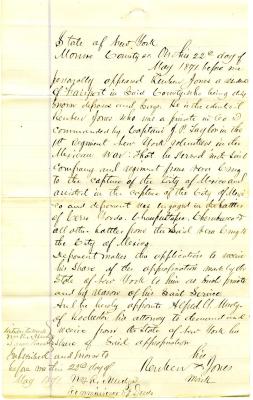 State of New York
Monroe County ss On this 22d day of
May 1871 before me
personally appeared Reuben Jones a resident
of Fairport in said County who being duly
sworn deposes and says he is the identical
Reuben Jones who was a private in Co D
commanded by Captain J. P. Taylor in the
1st Regiment New York Volunteers in the
Mexican War. That he served with said
company and regiment from Vera Cruz
to the capture of the City of Mexico and
assisted in the capture of the City of Mexi
co and deponent was engaged in the battles
of Cerro Gordo, Chapultepec Cherubusco &
all other battles from the said Vera Cruz to
the City of Mexico
Deponent makes this application to receive
his share of the appropriation made by the
State of New York to him as such private
and by reason of his said service
And he hereby appoints Alfred G. Mudge
of Rochester his attorney to demand and
receive from the State of New York his
share of said appropriation
Subscribed and sworn to
before me this 22d day of
May 1871
his
Reuben X Jones
mark
Commissioner of Deeds